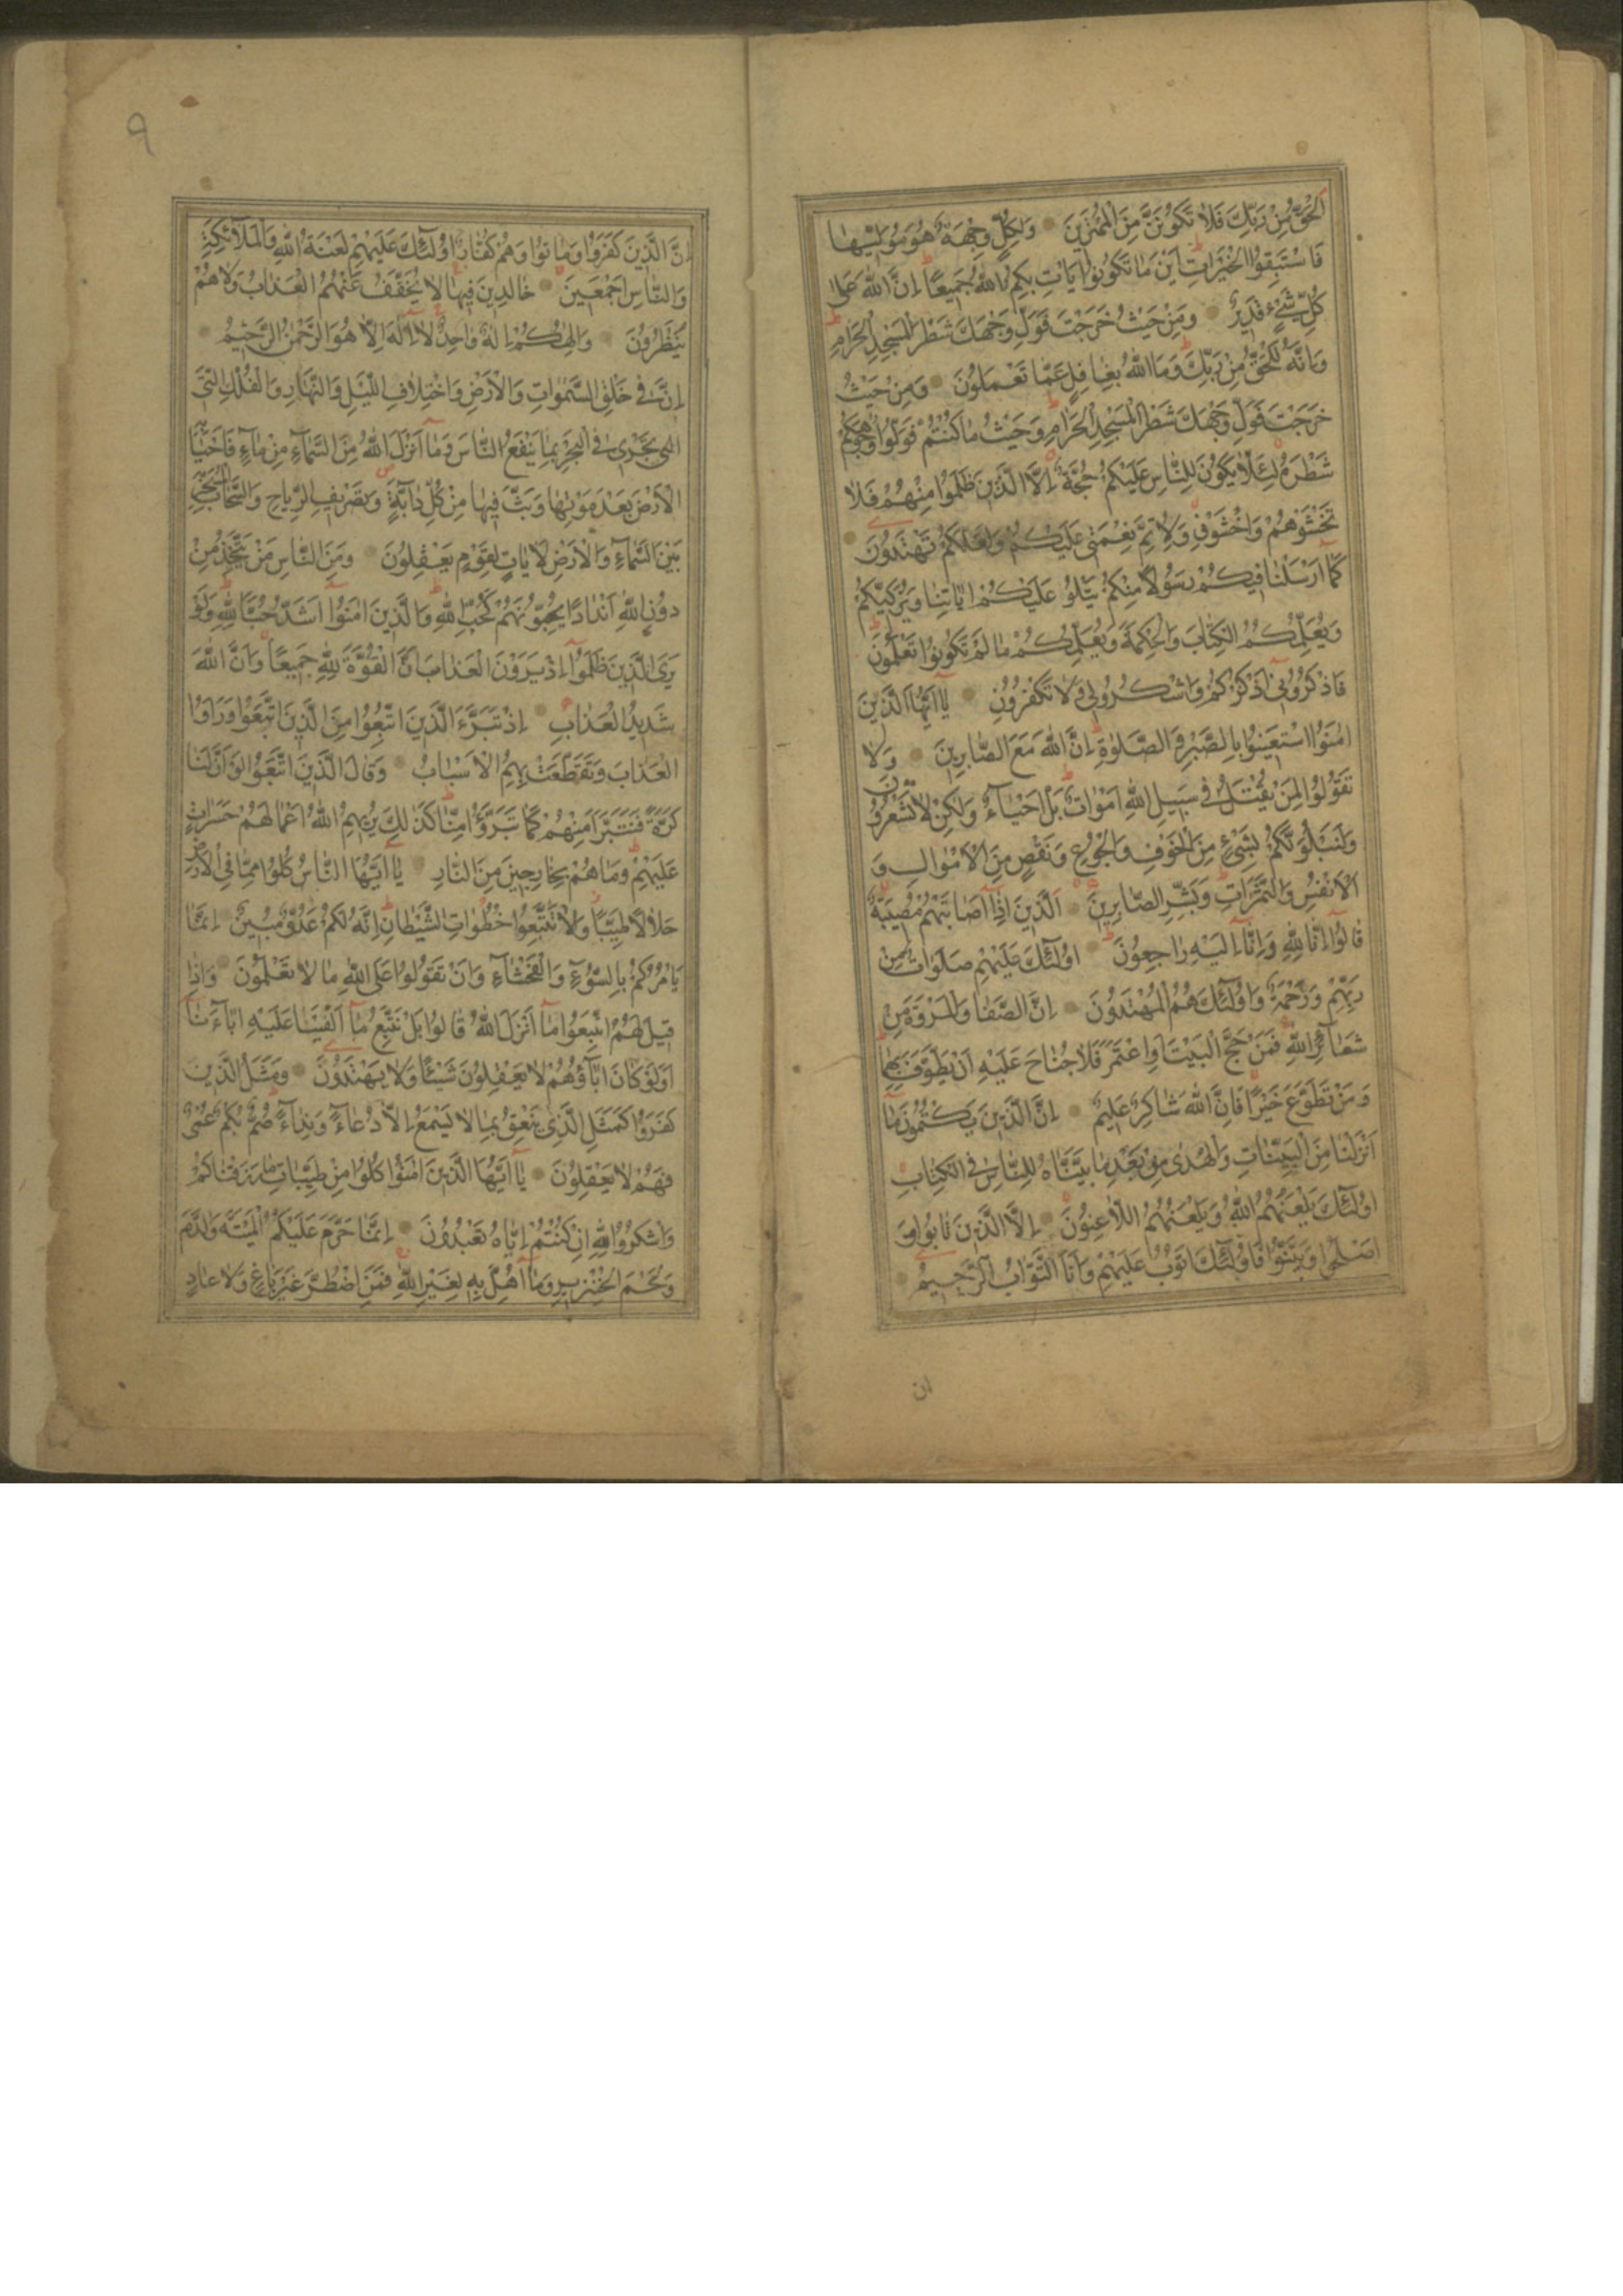 اَلْحَقُّ مِنْ رَبِّكَ فَلَا تَكُونَنَّ مِنَ الْمُمْتَرِينَ وَلِكُلٍّ وِجْهَةٌ هُوَ مُوَلِّيهَا
فَاسْتَبِقُوا الْخَيْرَاتِ اَيْنَ مَا تَكُونُوا يَاْتِ بِكُمُ اللّٰهُ جَمِيعًا اِنَّ اللّٰهَ عَلٰى
كُلِّ شَيْءٍ قَدِيرٌ وَمِنْ حَيْثُ خَرَجْتَ فَوَلِّ وَجْهَكَ شَطْرَ الْمَسْجِدِ الْحَرَامِ
وَاِنَّهُ لَلْحَقُّ مِنْ رَبِّكَ وَمَا اللّٰهُ بِغَافِلٍ عَمَّا تَعْمَلُونَ وَمِنْ حَيْثُ
خَرَجْتَ فَوَلِّ وَجْهَكَ شَطْرَ الْمَسْجِدِ الْحَرَامِ وَحَيْثُ مَا كُنْتُمْ فَوَلُّوا وُجُوهَكُمْ
شَطْرَهُ لِئَلَّا يَكُونَ لِلنَّاسِ عَلَيْكُمْ حُجَّةٌ اِلَّا الَّذِينَ ظَلَمُوا مِنْهُمْ فَلَا
تَخْشَوْهُمْ وَاخْشَوْنِى وَلِاُتِمَّ نِعْمَتِى عَلَيْكُمْ وَلَعَلَّكُمْ تَهْتَدُونَ
كَمَا اَرْسَلْنَا فِيكُمْ رَسُولًا مِنْكُمْ يَتْلُو عَلَيْكُمْ اٰيَاتِنَا وَيُزَكِّيكُمْ
وَيُعَلِّمُكُمُ الْكِتَابَ وَالْحِكْمَةَ وَيُعَلِّمُكُمْ مَا لَمْ تَكُونُوا تَعْلَمُونَ
فَاذْكُرُونِى اَذْكُرْكُمْ وَاشْكُرُولِى وَلَا تَكْفُرُونِ يَا اَيُّهَا الَّذِينَ
اٰمَنُوا اسْتَعِينُوا بِالصَّبْرِ وَالصَّلٰوةِ اِنَّ اللّٰهَ مَعَ الصَّابِرِينَ وَلَا
تَقُولُوا لِمَنْ يُقْتَلُ فِى سَبِيلِ اللّٰهِ اَمْوَاتٌ بَلْ اَحْيَاءٌ وَلٰكِنْ لَا تَشْعُرُونَ
وَلَنَبْلُوَنَّكُمْ بِشَيْءٍ مِنَ الْخَوْفِ وَالْجُوعِ وَنَقْصٍ مِنَ الْاَمْوَالِ وَ
الْاَنْفُسِ وَالثَّمَرَاتِ وَبَشِّرِ الصَّابِرِينَ اَلَّذِينَ اِذَا اَصَابَتْهُمْ مُصِيبَةٌ
قَالُوا اِنَّا لِلّٰهِ وَاِنَّا اِلَيْهِ رَاجِعُونَ اُولٰئِكَ عَلَيْهِمْ صَلَوَاتٌ مِنْ
رَبِّهِمْ وَرَحْمَةٌ وَاُولٰئِكَ هُمُ الْمُهْتَدُونَ اِنَّ الصَّفَا وَالْمَرْوَةَ مِنْ
شَعَائِرِ اللّٰهِ فَمَنْ حَجَّ الْبَيْتَ اَوِ اعْتَمَرَ فَلَا جُنَاحَ عَلَيْهِ اَنْ يَطَّوَّفَ بِهِمَا
وَمَنْ تَطَوَّعَ خَيْرًا فَاِنَّ اللّٰهَ شَاكِرٌ عَلِيمٌ اِنَّ الَّذِينَ يَكْتُمُونَ مَا
اَنْزَلْنَا مِنَ الْبَيِّنَاتِ وَالْهُدٰى مِنْ بَعْدِ مَا بَيَّنَّاهُ لِلنَّاسِ فِى الْكِتَابِ
اُولٰئِكَ يَلْعَنُهُمُ اللّٰهُ وَيَلْعَنُهُمُ اللَّاعِنُونَ اِلَّا الَّذِينَ تَابُوا وَ
اَصْلَحُوا وَبَيَّنُوا فَاُولٰئِكَ اَتُوبُ عَلَيْهِمْ وَاَنَا التَّوَّابُ الرَّحِيمُ
ان
٩
اِنَّ الَّذِينَ كَفَرُوا وَمَاتُوا وَهُمْ كُفَّارٌ اُولٰئِكَ عَلَيْهِمْ لَعْنَةُ اللّٰهِ وَالْمَلَائِكَةِ
وَالنَّاسِ اَجْمَعِينَ خَالِدِينَ فِيهَا لَا يُخَفَّفُ عَنْهُمُ الْعَذَابُ وَلَا هُمْ
يُنْظَرُونَ وَاِلٰهُكُمْ اِلٰهٌ وَاحِدٌ لَا اِلٰهَ اِلَّا هُوَ الرَّحْمٰنُ الرَّحِيمُ
اِنَّ فِى خَلْقِ السَّمٰوَاتِ وَالْاَرْضِ وَاخْتِلَافِ اللَّيْلِ وَالنَّهَارِ وَالْفُلْكِ الَّتِى
التى تَجْرِى فِى الْبَحْرِ بِمَا يَنْفَعُ النَّاسَ وَمَا اَنْزَلَ اللّٰهُ مِنَ السَّمَاءِ مِنْ مَاءٍ فَاَحْيَا بِهِ
الْاَرْضَ بَعْدَ مَوْتِهَا وَبَثَّ فِيهَا مِنْ كُلِّ دَابَّةٍ وَتَصْرِيفِ الرِّيَاحِ وَالسَّحَابِ الْمُسَخَّرِ
بَيْنَ السَّمَاءِ وَالْاَرْضِ لَاٰيَاتٍ لِقَوْمٍ يَعْقِلُونَ وَمِنَ النَّاسِ مَنْ يَتَّخِذُ مِنْ
دُونِ اللّٰهِ اَنْدَادًا يُحِبُّونَهُمْ كَحُبِّ اللّٰهِ وَالَّذِينَ اٰمَنُوا اَشَدُّ حُبًّا لِلّٰهِ وَلَوْ
يَرَى الَّذِينَ ظَلَمُوا اِذْ يَرَوْنَ الْعَذَابَ اَنَّ الْقُوَّةَ لِلّٰهِ جَمِيعًا وَاَنَّ اللّٰهَ
شَدِيدُ الْعَذَابِ اِذْ تَبَرَّءَ الَّذِينَ اتُّبِعُوا مِنَ الَّذِينَ اتَّبَعُوا وَرَاَوُا
الْعَذَابَ وَتَقَطَّعَتْ بِهِمُ الْاَسْبَابُ وَقَالَ الَّذِينَ اتَّبَعُوا لَوْ اَنَّ لَنَا
كَرَّةً فَنَتَبَرَّاَ مِنْهُمْ كَمَا تَبَرَّؤُا مِنَّا كَذٰلِكَ يُرِيهِمُ اللّٰهُ اَعْمَالَهُمْ حَسَرَاتٍ
عَلَيْهِمْ وَمَا هُمْ بِخَارِجِينَ مِنَ النَّارِ يَا اَيُّهَا النَّاسُ كُلُوا مِمَّا فِى الْاَرْضِ
حَلَالًا طَيِّبًا وَلَا تَتَّبِعُوا خُطُوَاتِ الشَّيْطَانِ اِنَّهُ لَكُمْ عَدُوٌّ مُبِينٌ اِنَّمَا
يَاْمُرُكُمْ بِالسُّوءِ وَالْفَحْشَاءِ وَاَنْ تَقُولُوا عَلَى اللّٰهِ مَا لَا تَعْلَمُونَ وَاِذَا
قِيلَ لَهُمُ اتَّبِعُوا مَا اَنْزَلَ اللّٰهُ قَالُوا بَلْ نَتَّبِعُ مَا اَلْفَيْنَا عَلَيْهِ اٰبَاءَنَا
اَوَلَوْ كَانَ اٰبَاؤُهُمْ لَا يَعْقِلُونَ شَيْئًا وَلَا يَهْتَدُونَ وَمَثَلُ الَّذِينَ
كَفَرُوا كَمَثَلِ الَّذِى يَنْعِقُ بِمَا لَا يَسْمَعُ اِلَّا دُعَاءً وَنِدَاءً صُمٌّ بُكْمٌ عُمْىٌ
فَهُمْ لَا يَعْقِلُونَ يَا اَيُّهَا الَّذِينَ اٰمَنُوا كُلُوا مِنْ طَيِّبَاتِ مَا رَزَقْنَاكُمْ
وَاشْكُرُوا لِلّٰهِ اِنْ كُنْتُمْ اِيَّاهُ تَعْبُدُونَ اِنَّمَا حَرَّمَ عَلَيْكُمُ الْمَيْتَةَ وَالدَّمَ
وَلَحْمَ الْخِنْزِيرِ وَمَا اُهِلَّ بِهِ لِغَيْرِ اللّٰهِ فَمَنِ اضْطُرَّ غَيْرَ بَاغٍ وَلَا عَادٍ